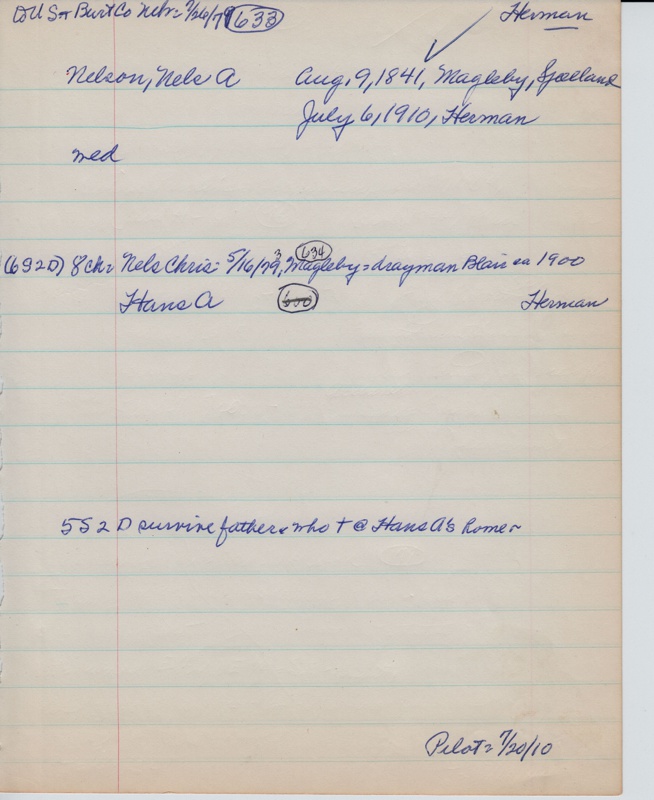 to U S → Burt Co Nebr = 7/26/79 633 Herman
Nelson, Nels A Aug, 9, 1841, Magleby, Sjoelland
July 6, 1910, Herman
med
(6S2D) 8 ch = Nels Chris - 5/16/73, Magleby = drayman Blair ca 1900 634
Hans A 600 Herman
5S 2 D survive father who + @ Hans A's home
Pilot = 7/20/10